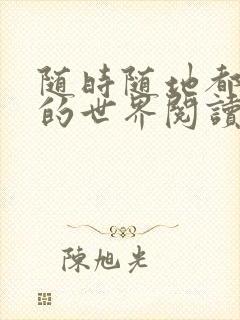 随時随地都
的世界閱讀
陳旭光